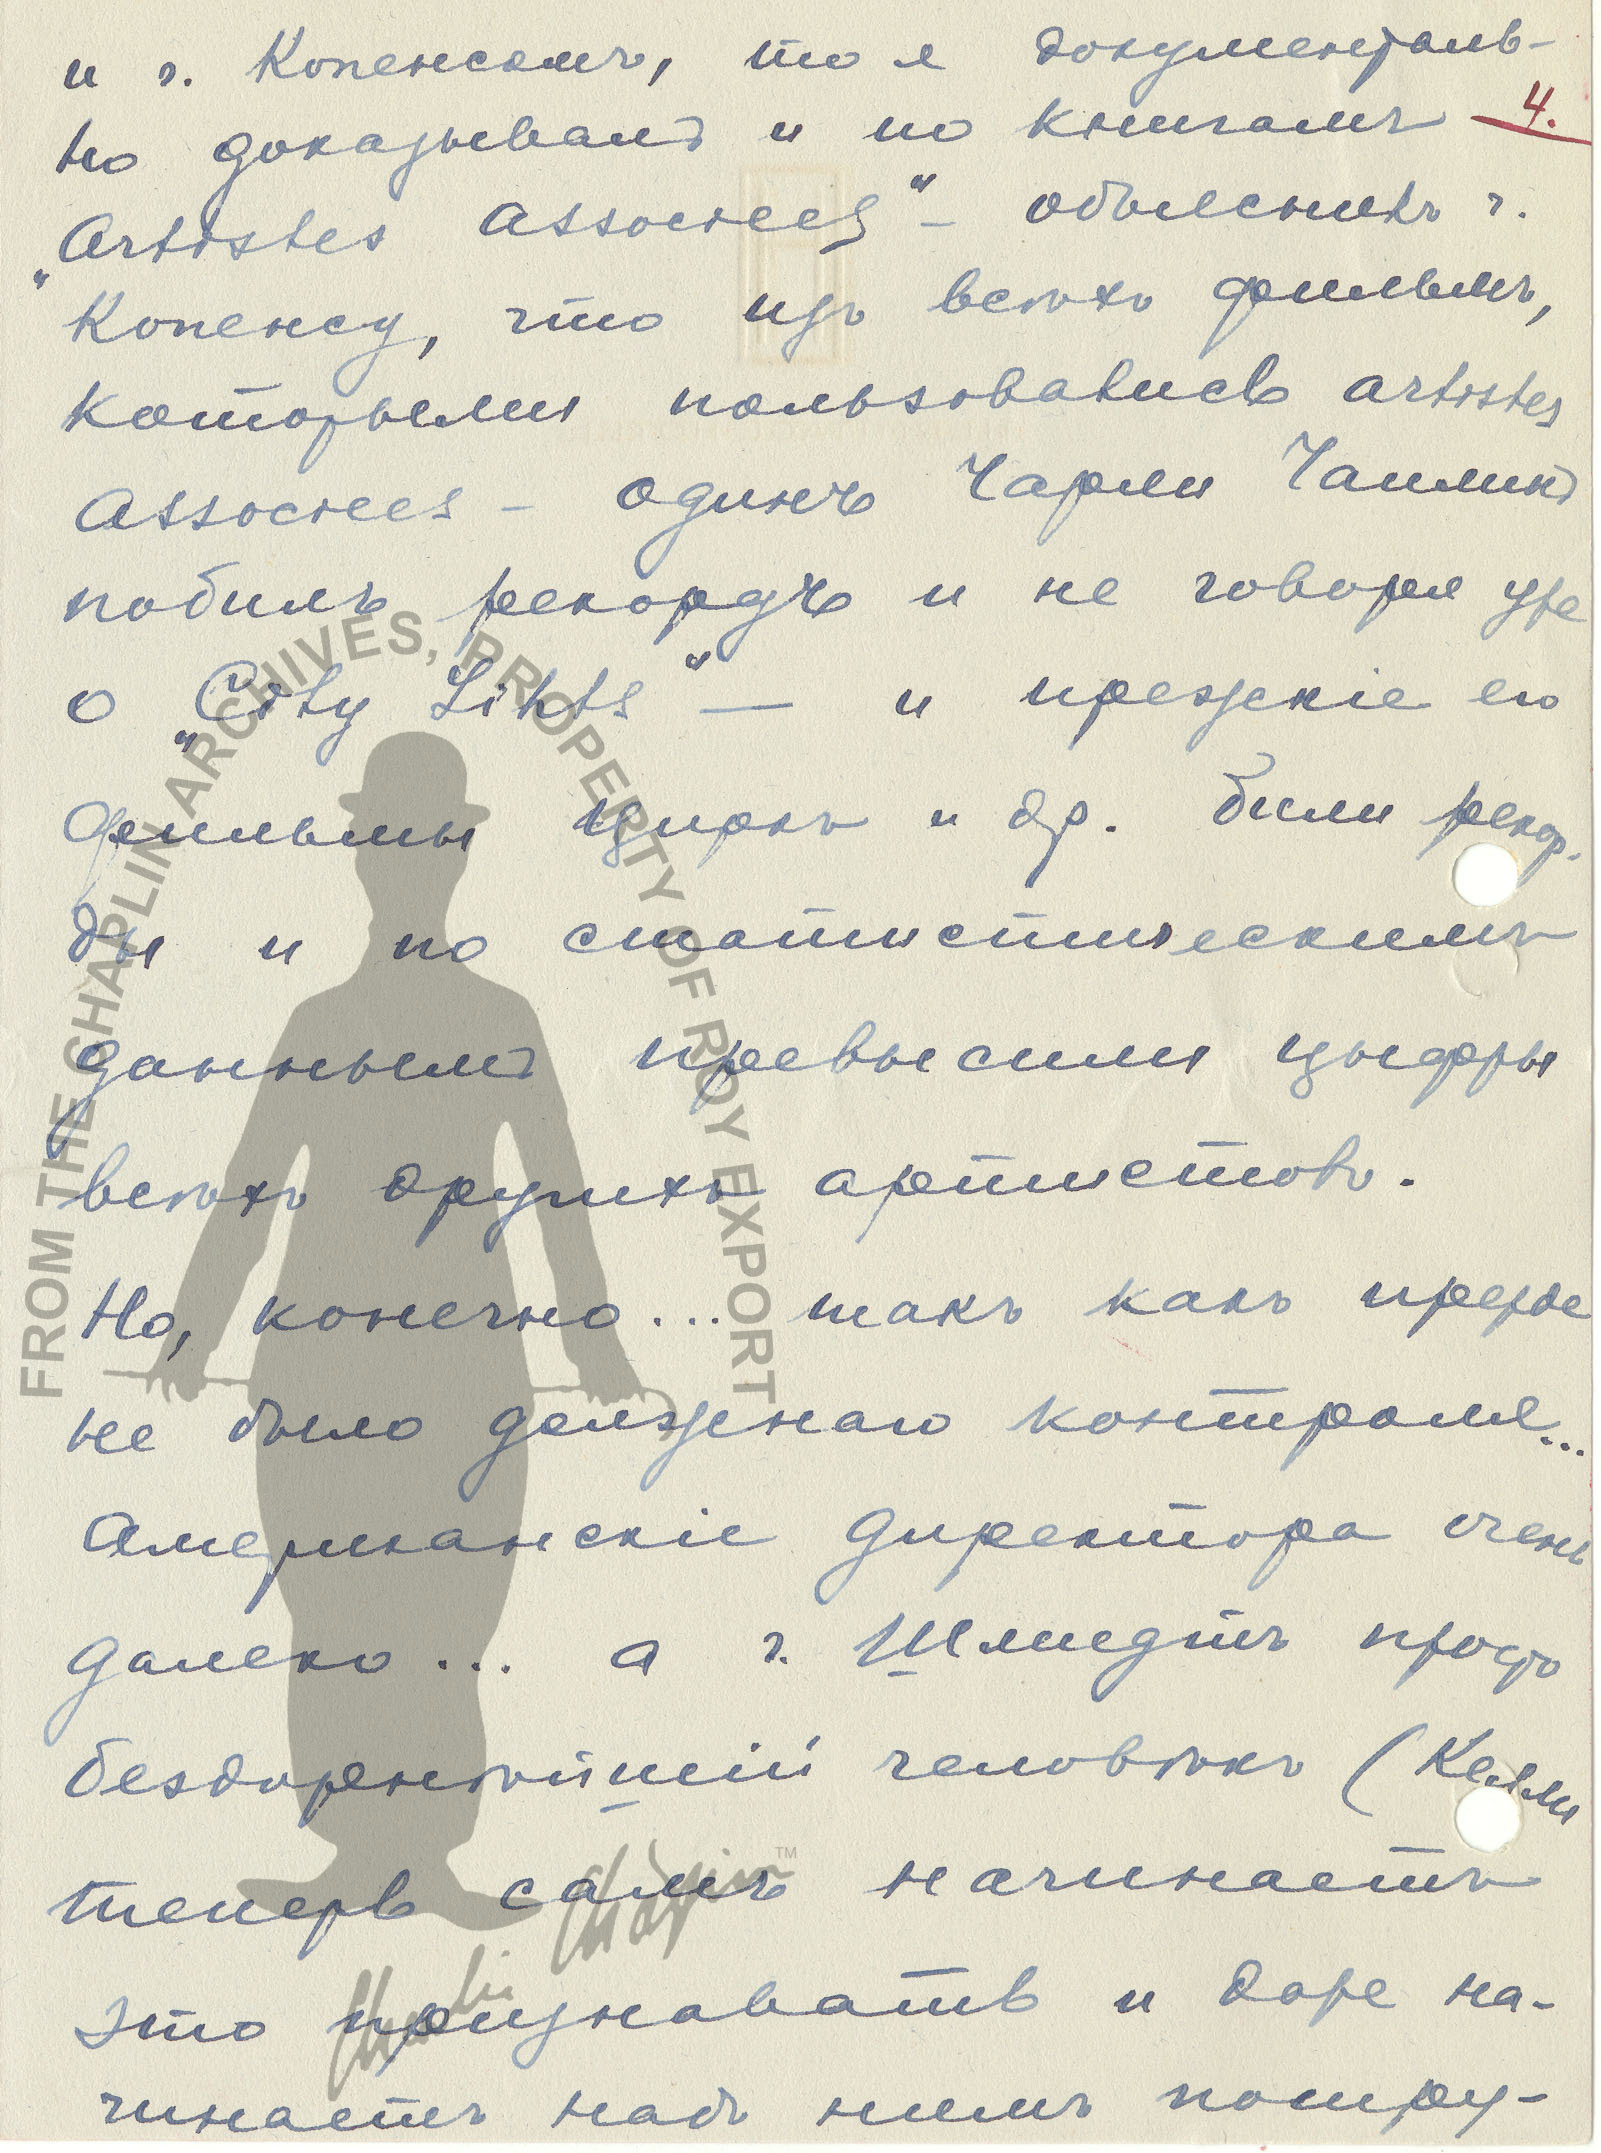 и г. Копенсамъ, то я документаль-
но доказывалъ и по книгамъ 4.
„Artistes Associees“ – объяснить г.
Копенсу, что изъ всѣхъ фильмъ,
которыми пользовались Artistes
Associees – одинъ Чарли Чаплинъ
побилъ рекордъ и не говоря уже
о „City Lihts“ — и прежніе его
фильмы Циркъ и др. били рекор-
ды и по статистическимъ
даннымъ превысили цыфры
всѣхъ другихъ артистовъ.
Но, конечно... такъ какъ прежде
не было должнаго контроля...
Американскіе директора очень
далеко... а г. Шмидтъ просто
бездарнѣйшій человѣкъ (Келли
теперь самъ начинаетъ
это признавать и даже на-
чинаетъ надъ нимъ потру-
FROM THE CHAPLIN ARCHIVES, PROPERTY OF ROY EXPORT
Charlie Chaplin™